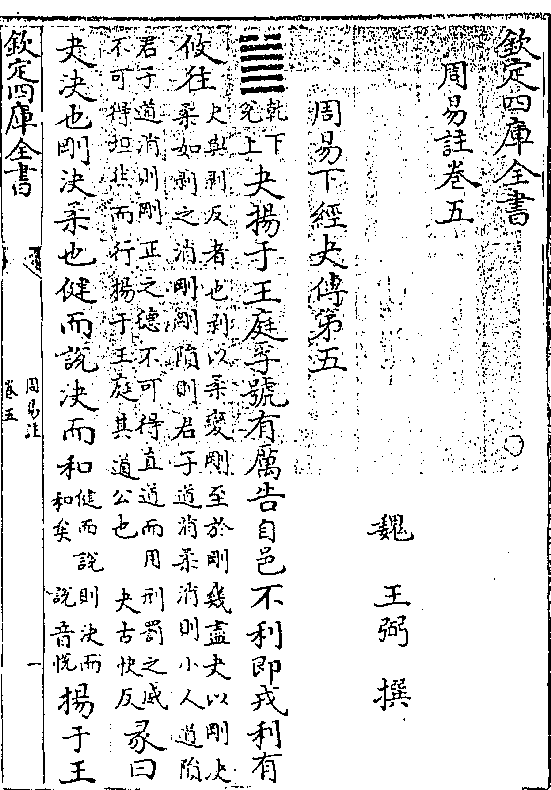 欽定四庫全書
周易註卷五
魏 王弼 撰
周易下經夬傳第五
䷪ 乾下
兌上
夬揚于王庭孚號有厲告自邑不利即戎利有
攸往
夬與剝反者也剝以柔變剛至於剛幾盡夬以剛決
柔如剝之消剛剛隕則君子道消柔消則小人道隕
君子道消則剛正之德不可得直道而用刑罰之威
不可得坦然而行揚于王庭其道公也 夬古快反
彖曰
夬決也剛決柔也健而說決而和
健而說則決而
和矣 說音悅
揚于王
欽定四庫全書
周易註
卷五
一